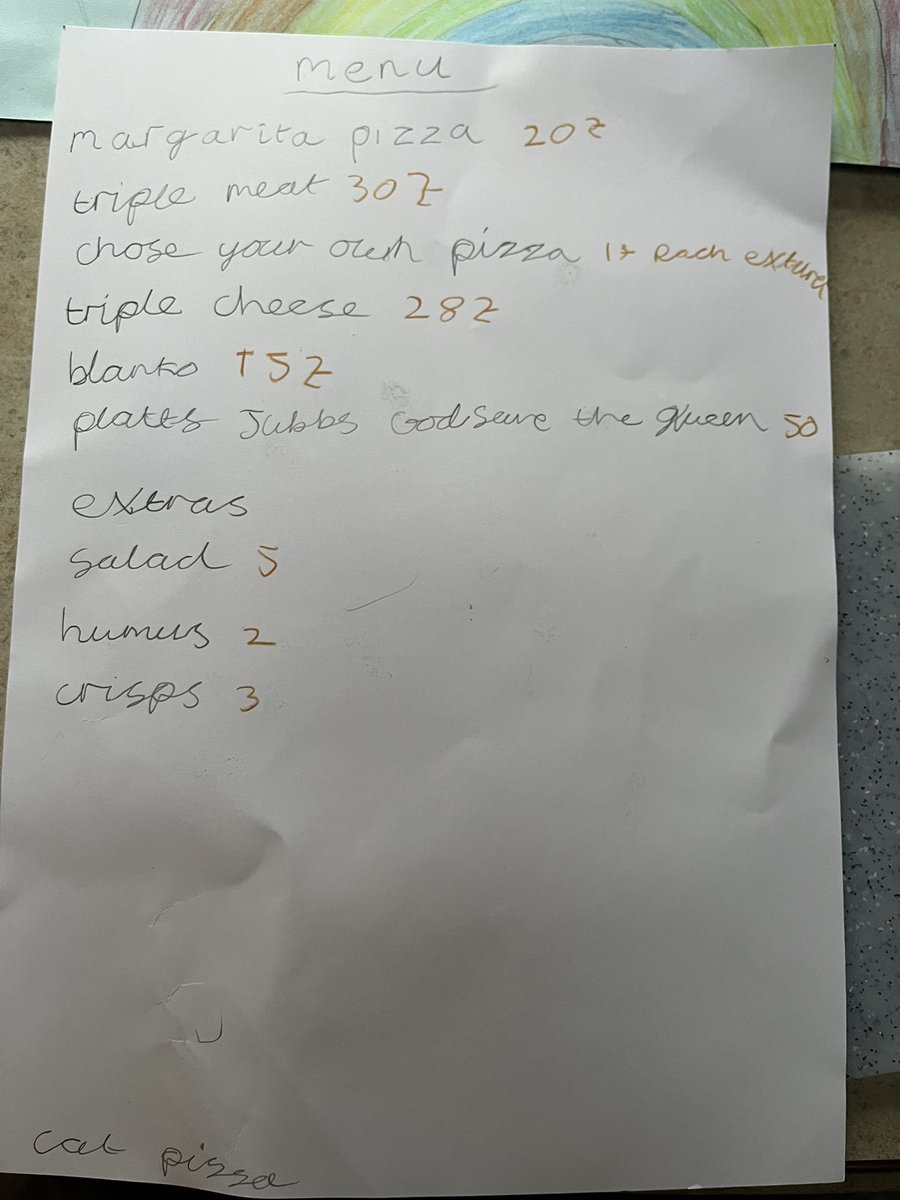 menu
margarita pizza 20z
triple meat 30z
chose your own pizza 1z each extura
triple cheese 28z
blanko 15z
plates Jubbs God save the queen 50
extras
salad 5
humus 2
crisps 3
cat pizza